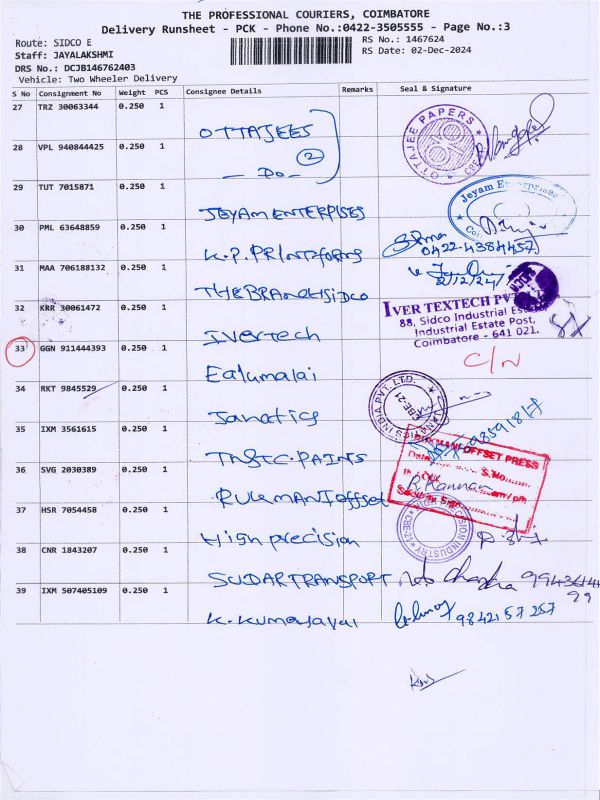 THE PROFESSIONAL COURIERS, COIMBATORE
Delivery Runsheet - PCK - Phone No.:0422-3505555 - Page No.:3
Route: SIDCO E
RS No.: 1467624
Staff: JAYALAKSHMI
RS Date: 02-Dec-2024
DRS No.: DCJB146762403
Vehicle: Two Wheeler Delivery
S No Consignment No Weight PCS Consignee Details Remarks Seal & Signature
27 TRZ 30063344 0.250 1 OTTAJEES
OTTAJEE PAPERS
28 VPL 940844425 0.250 1 - Do - 2
29 TUT 7015871 0.250 1 JEYAM ENTERPRISES
Jeyam Enterprises
30 PML 63648859 0.250 1 K.P. PRINTforms
0422-4384457
31 MAA 706188132 0.250 1 THEBRANCHSIDCO
2/12/24
32 KRR 30061472 0.250 1 IVERTECH
IVER TEXTECH PVT
88, Sidco Industrial Est
Industrial Estate Post,
Coimbatore - 641 021.
33 GGN 911444393 0.250 1 Ealumalai
C/N
34 RKT 9845529 0.250 1 Janatics
JANATICS INDIA PVT. LTD.
CBE-21
35 IXM 3561615 0.250 1 TNSIC.PAINS
36 SVG 2030389 0.250 1 RUKMANI offset
OFFSET PRESS
S.No
R. Kannan
am/pm
Security Sign
37 HSR 7054458 0.250 1 High precision
CBE-21
38 CNR 1843207 0.250 1 SUDAR TRANSPORT
39 IXM 507405109 0.250 1 K. Kumaravai
9842157257